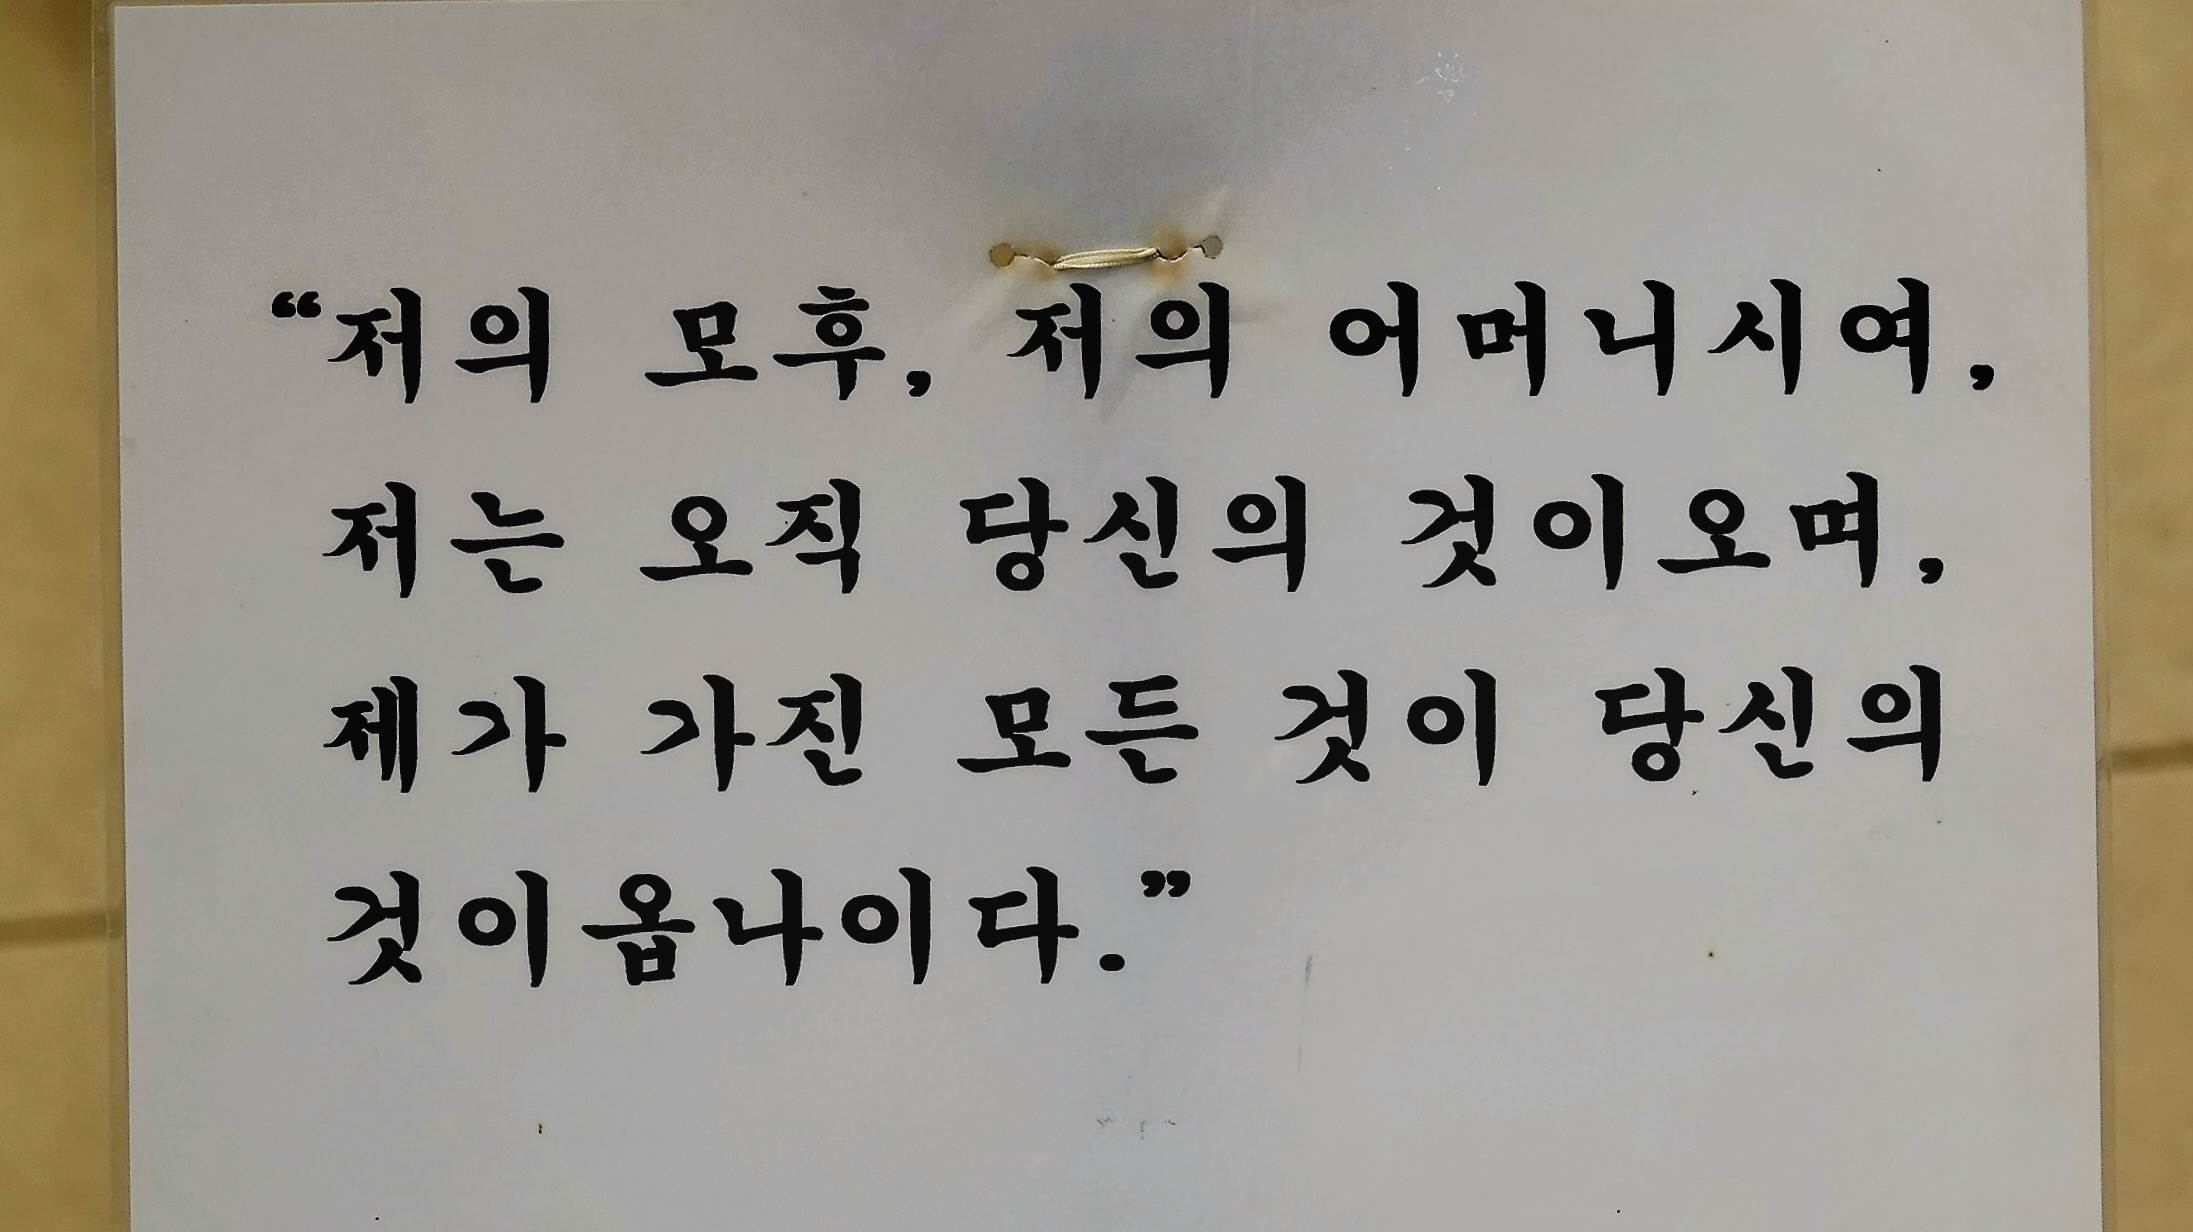 “저의 모후, 저의 어머니시여,
저는 오직 당신의 것이오며,
제가 가진 모든 것이 당신의
것이옵나이다.”